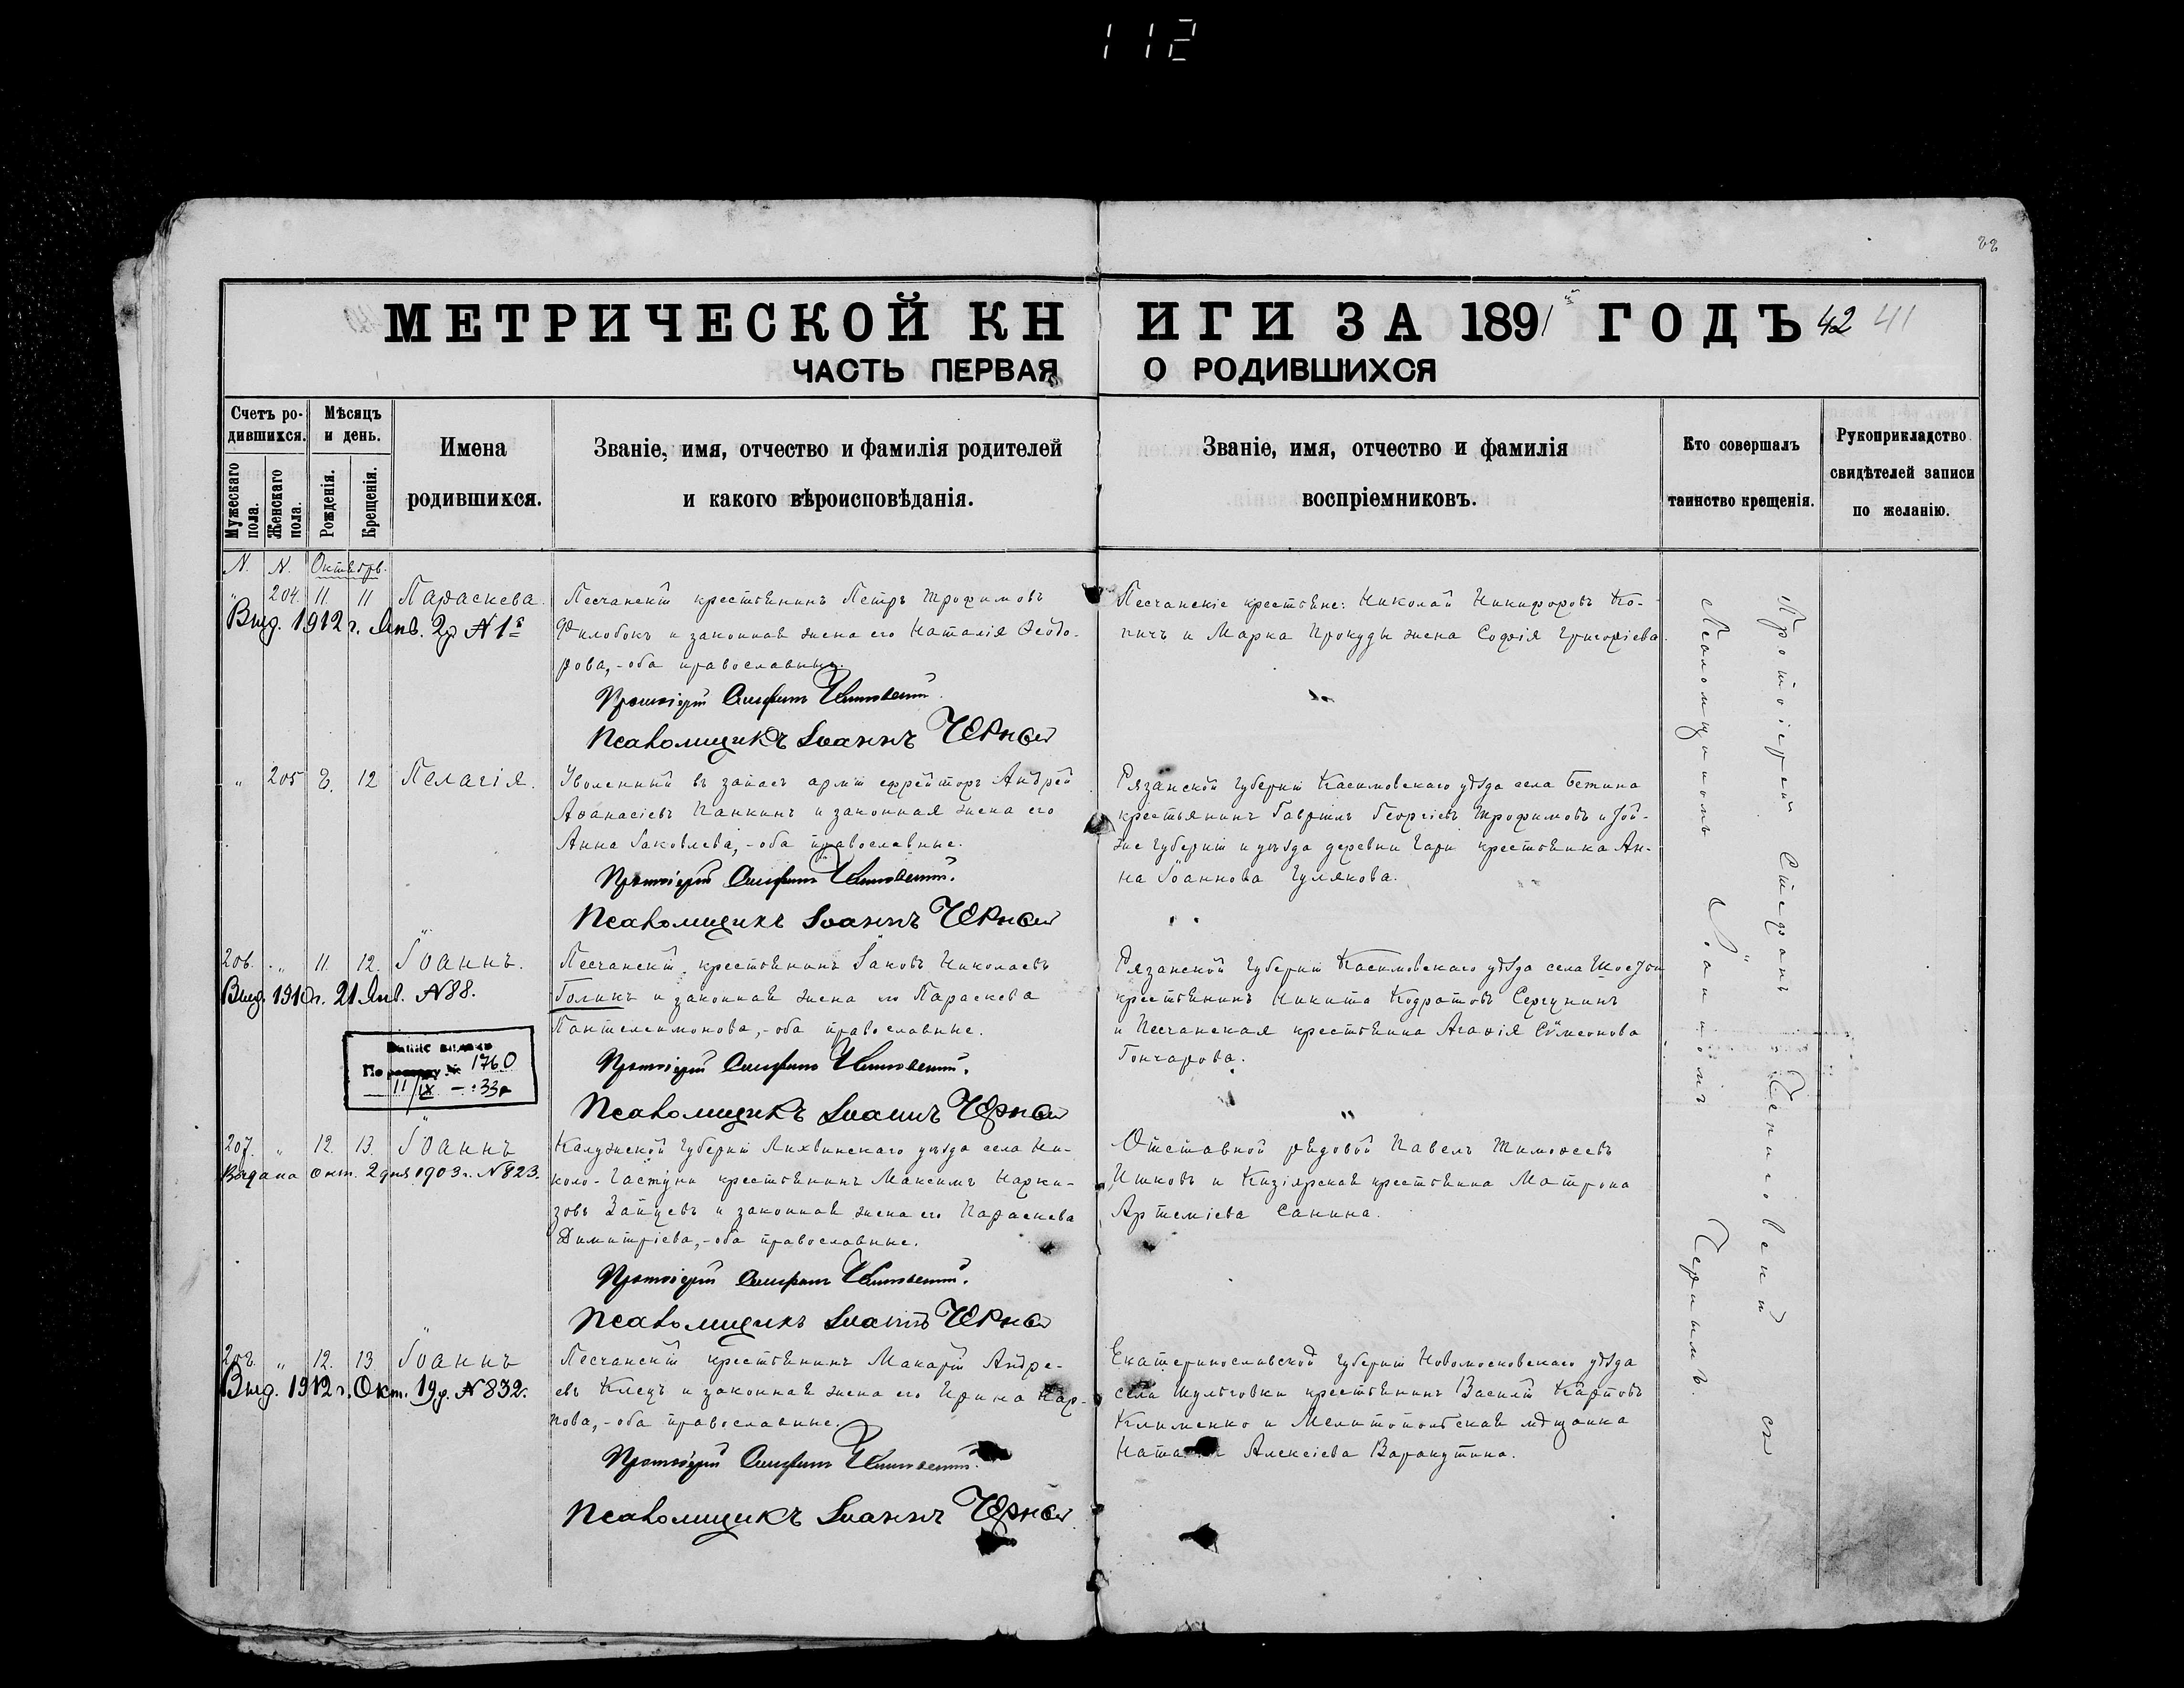 112
22
МЕТРИЧЕСКОЙ КНИГИ ЗА 1891 ГОДЪ 42 41
ЧАСТЬ ПЕРВАЯ О РОДИВШИХСЯ
Счетъ родившихся.
Мужескаго пола.
Женскаго пола.
Мѣсяцъ и день.
Рожденія.
Крещенія.
Имена
родившихся.
Званіе, имя, отчество и фамилія родителей
и какого вѣроисповѣданія.
Званіе, имя, отчество и фамилія
воспріемниковъ.
Кто совершалъ
таинство крещенія.
Рукоприкладство
свидѣтелей записи
по желанію.
N. N. Октябрь.
" 204. 11 11 Параскева.
Выд. 1912 г. Янв. 2д N 1й
Песчанскій крестьянинъ Петръ Трофимовъ
Филобокъ и законная жена его Наталія Ѳеодо-
рова,-оба православные.
Протоіерей Стефанъ
Псаломщикъ Іоаннъ Черный
Песчанскіе крестьяне: Николай Никифоровъ Ко-
пичъ и Марка Прокуды жена Софія Григоріева.
" 205 8. 12 Пелагія.
Уволенный въ запасъ арміи ефрейторъ Андрей
Аѳанасіевъ Панкинъ и законная жена его
Анна Іаковлева,-оба православные.
Протоіерей Стефанъ
Псаломщикъ Іоаннъ Черный
Рязанской губерніи Касимовскаго уѣзда села Бетина
крестьянинъ Гавріилъ Георгіевъ Трофимовъ и той-
же губерніи и уѣзда деревни Гари крестьянка Ан-
на Іоаннова Гулякова.
206. " 11. 12. Іоаннъ.
Выд. 1910 г. 21 Янв. N 88.
1760
11/IX - 33г
Песчанскій крестьянинъ Іаковъ Николаевъ
Голикъ и законная жена его Параскева
Пантелеимонова,-оба православные.
Протоіерей Стефанъ
Псаломщикъ Іоаннъ Черный
Рязанской губерніи Касимовскаго уѣзда села
крестьянинъ Никита Кодратовъ Сергунинъ
и Песчанская крестьянка Агаѳія Сѵмеонова
Гончарова.
"
207. " 12. 13. Іоаннъ
Выдана Окт. 2 дня 1903 г. N 823.
Калужской губерніи Лихвинскаго уѣзда села Ни-
коло-Гастуни крестьянинъ Максимъ Нарки-
зовъ Зайцевъ и законная жена его Параскева
Димитріева,-оба православные.
Протоіерей Стефанъ
Псаломщикъ Іоаннъ Черный
Отставной рядовой Павелъ Тимоѳеевъ
Ишковъ и Кизіярская крестьянка Матрона
Артеміева Санина.
208. " 12. 13. Іоаннъ
Выд. 1912 г. Окт. 19д. N 832.
Песчанскій крестьянинъ Макарій Андре-
евъ Клецъ и законная жена его Ирина Кар-
пова,-оба православные.
Протоіерей Стефанъ
Псаломщикъ Іоаннъ Черный
Екатеринославской губерніи Новомосковскаго уѣзда
села Шульговки крестьянинъ Василій Карповъ
Клименко и Мелитопольская мѣщанка
Алексіева Варакутина.
Протоіерей Стефанъ съ
Псаломщикомъ Іоанномъ Чернымъ.